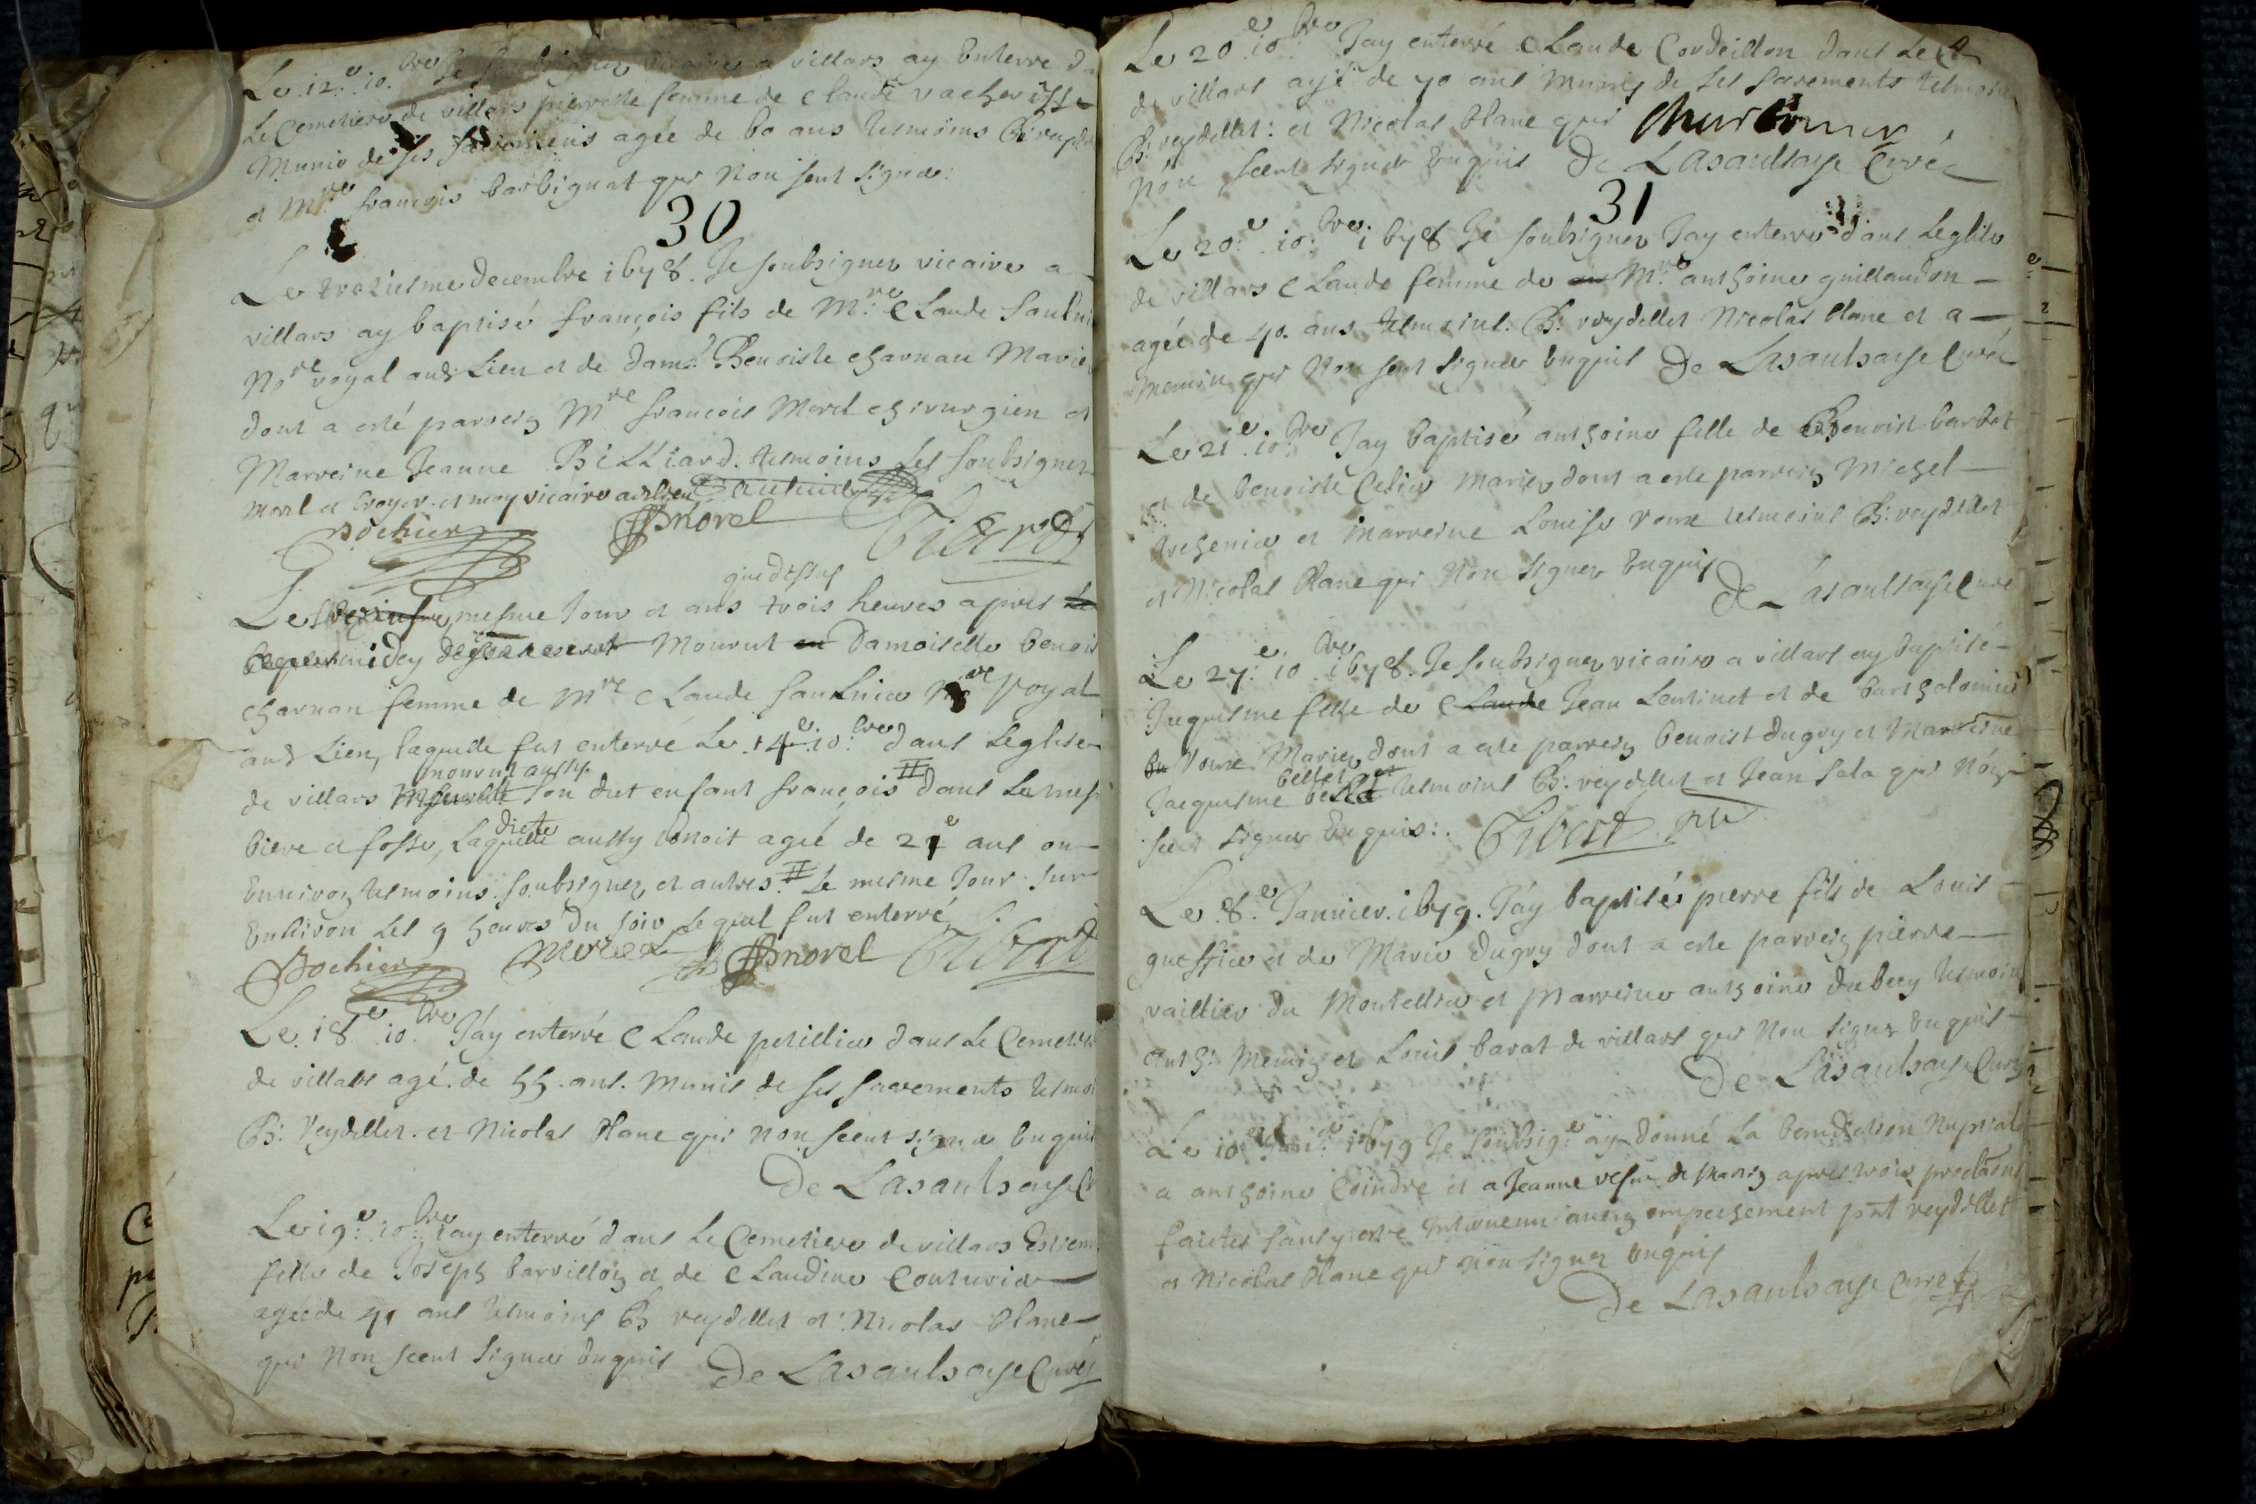 Le .12.e 10.bre Je soubsignez vicaire a villars ay Enterre d
Le Cemetiere de villars pierrette femme de claude vacherisse
Munie de ses sacremens agée de 60 ans tesmoins B: veyde
et Mre francois barbignat qui Non sceut signer:
30
Le treziesme decembre 1678. Je soubsignez vicaire a
villars ay baptisé françois fils de Mre Claude saulni
Nore royal aud Lieu et de dam.lle Benoiste charnau Mariez
dont a esté parrein Mre françois Morel chirurgien et
Marreine Jeanne Billiard. tesmoins Les soubsignez
morel et et moy vicaire aud lieu
Bochier Morel Tibard
que dessus
Le mesme Jour et ans trois heures apres
midy Mourut Damoiselle benois
charnau femme de Mre Claude saulnier Nore royal
aud Lieu, laquelle fut enterré Le .14.e 10.bre dans Leglise
mourut aussy
de villars son dict enfant françois # dans La mes
dicte
biere et fosse, Laquelle aussy benoit agée de 21e ans ou
Environ tesmoins soubsignez et autres. # Le mesme Jour sur
Environ Les 9 heures du soir Lequel fut enterré
Bochier Morel Morel Tibard
Le .18.e 10.bre J'ay enterré Claude petillier dans Le Cemetie
de villars agé de 55. ans. Munis de ses sacrements tesmoi
B: Veydellet. et Nicolas Plane qui non sceut signer Enquis
De Lasaulsaye C
Le 19.e 10.bre Jay enterré dans Le Cemetiere de villars Estien
fille de Joseph barvillon et de Claudine Couturier
agée de 41 ans tesmoins B veydellet et Nicolas Plane
qui Non sceut signer Enquis De Lasaulsaye Curé
Le 20.e 10.bre Jay enterré Claude Cordeillon dans Le C
de villars agé de 70 ans Munis de ses sacrements tesmoin
B: veydellet: et Nicolas Plane qui
Non sceut signer Enquis De Lasaulsaye Curé
31
Le 20.e 10.bre 1678 Je soubsignez Jay enterré dans Leglise
de villars Claude femme de Mre anthoine guillaudon
agée de 40. ans tesmoins. B: veydellet Nicolas Plane et a
Memin qui Non sceut signer Enquis De Lasaulsaye Curé
Le 21.e 10.bre Jay baptisé anthoine fille de Benoist barbet
et de benoiste Celier Mariez dont a esté parrein Michel
trehenier et Marreine Louise vome tesmoins B: veydellet
et Nicolas Plane qui Non signer Enquis
De Lasaulsaye Curé
Le 27.e 10.bre 1678. Je soubsignez vicaire a villars ay baptisé
Jaquesme fille de Claude Jean Lentinet et de bartholomie
Vome Mariez dont a esté parrein benoist dugry et Marreine
Jacquesme bellet tesmoins B: veydellet et Jean sala qui Non
sceu signer Enquis: Tibard
Le .8.e Jannier. 1679. J'ay baptisés pierre fils de Louis
gueffier et de Marie dugry dont a esté parrein pierre
vaillier du Montellier et Marreine anthoine dubecy tesmoin
Anth: Memin et Louis barat de villars qui Non signer Enquis
De Lasaulsaye Curé
Le 10.e Janie.r 1679 Je soubsig.e ay donné La benediction Nuptiale
a anthoine Coindre et a Jeanne vesue de Marin apres trois proclâons
faictes sans y estre Intervenu aucun empechement pñt veydellet
et Nicolas Plane qui Non signer Enquis
De Lasaulsaye Curé